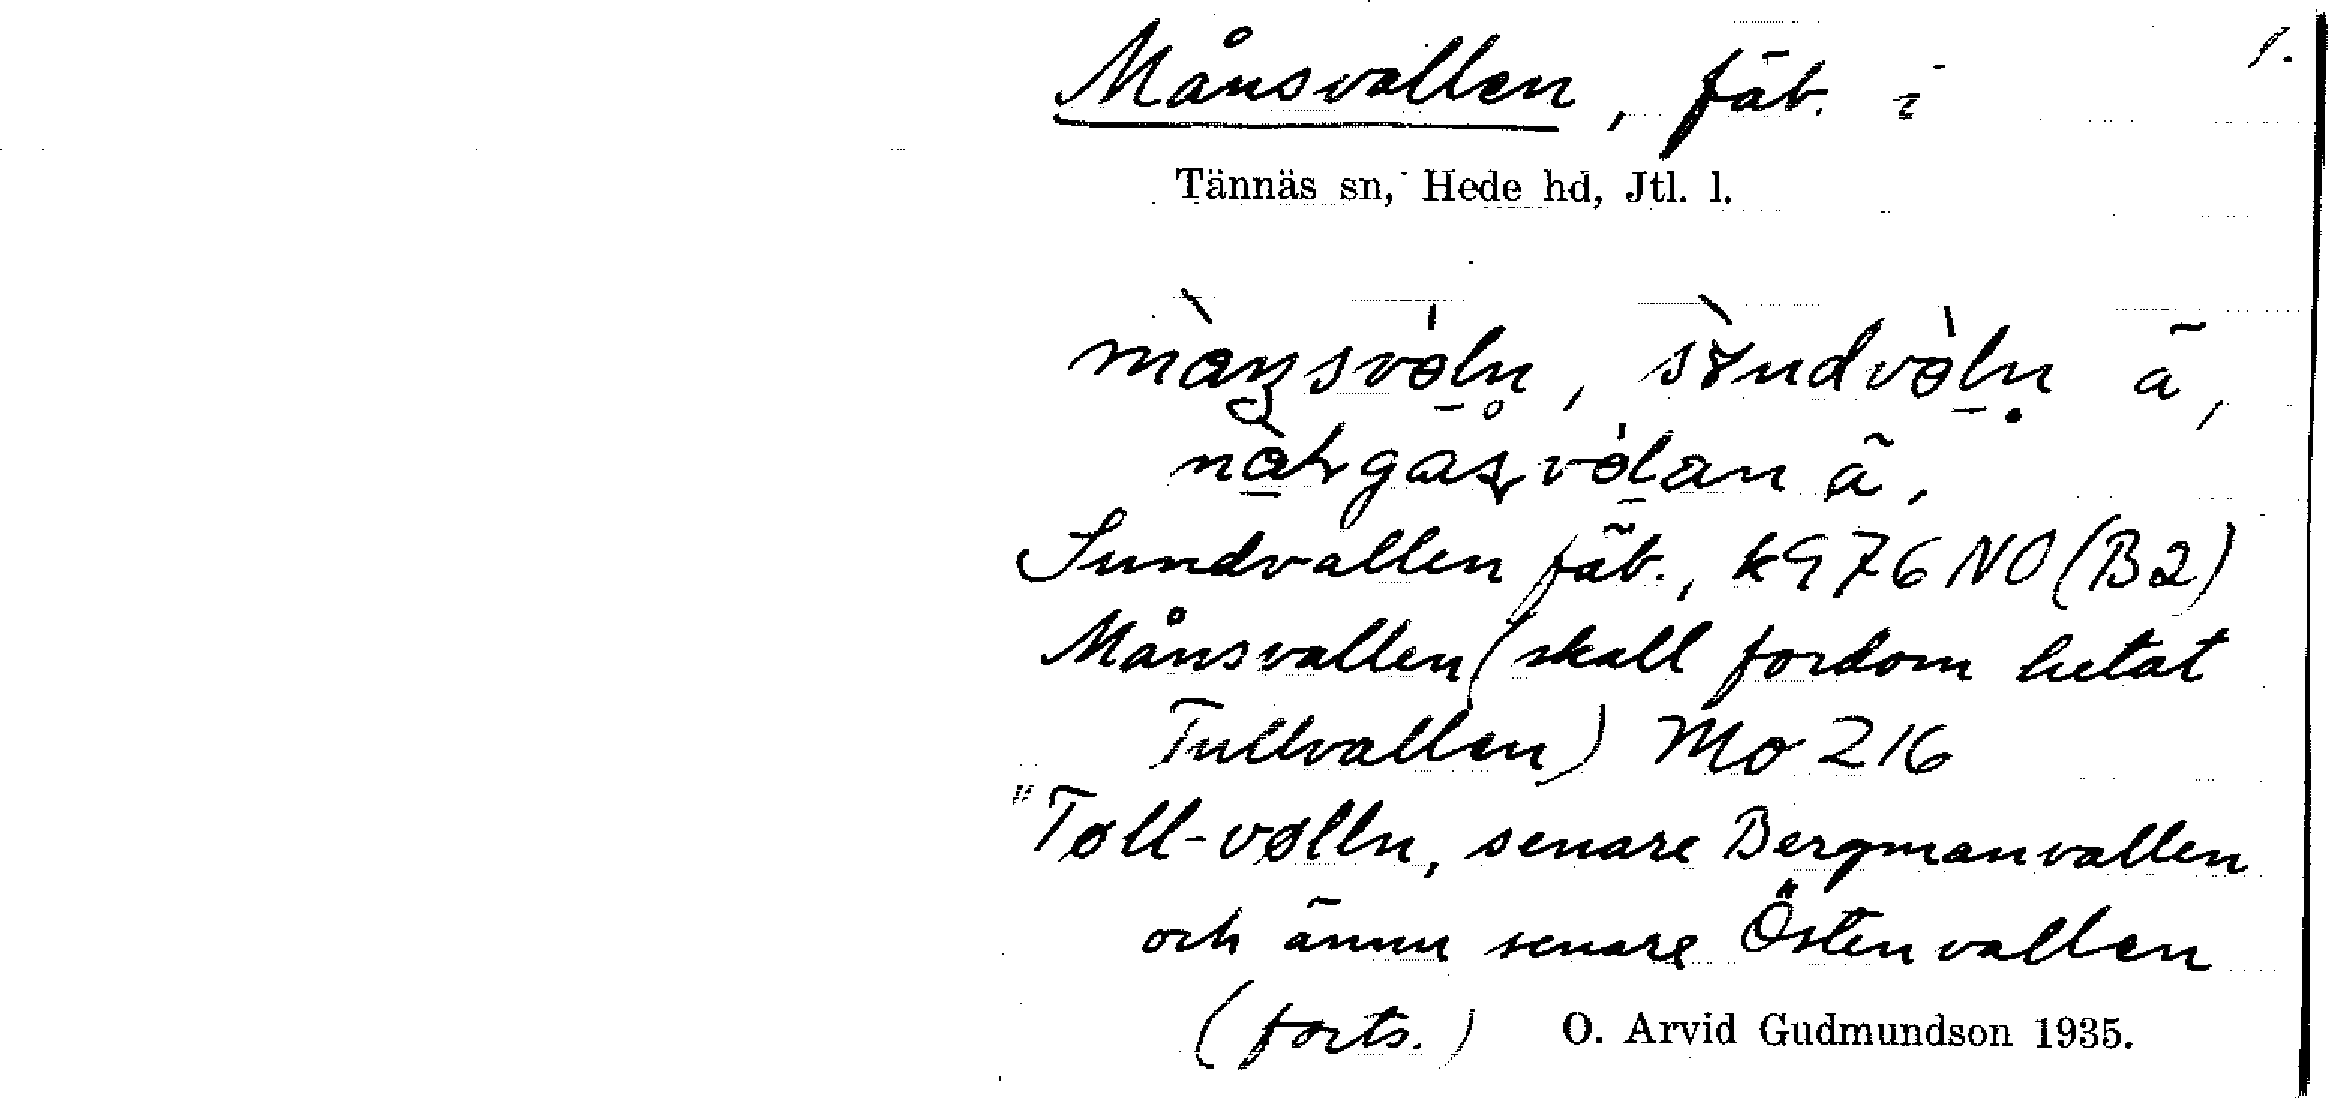 Månsvallen, fäb. i 1.
Tännäs sn, Hede hd, Jtl. l.
ä,
ä,
Sundvallen fäb., k976 NO (B2)
Månsvallen (skall fordom hetat
Tullvallen) Mo 216
"Tøll-vølln, senare Bergmanvallen
och ännu senare Östenvallen
(forts.) O. Arvid Gudmundson 1935.